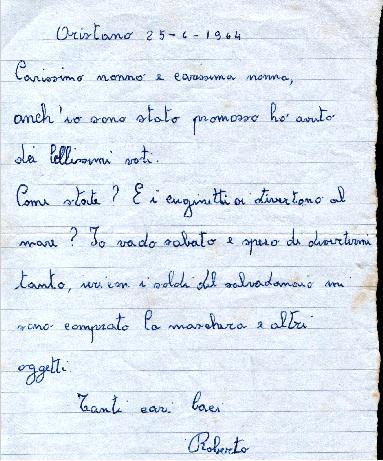 Oristano 25-6-1964
Carissimo nonno e carissima nonna,
anch'io sono stato promosso ho avuto
dei bellissimi voti.
Come state? E i cuginetti si divertono al
mare? Io vado sabato e spero di divertirmi
tanto, con i soldi del salvadanaio mi
sono comprato la maschera e altri
oggetti.
Tanti cari baci
Roberto